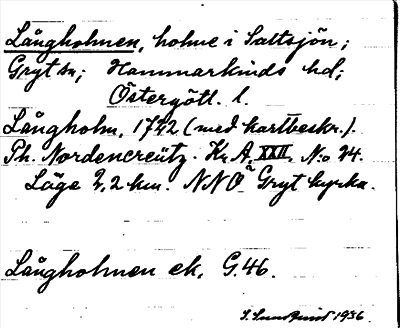 Långholmen, holme i Saltsjön;
Gryt sn; Hammarkinds hd;
Östergötl. l.
Långholm, 1742 (med kartbeskr.).
Th. Nordencreütz. Kr. A. XXII. N:o 24.
Läge 2,2 km. NNO Gryt kyrka.
Långholmen ek. G.46.
S. Sundquist 1936.